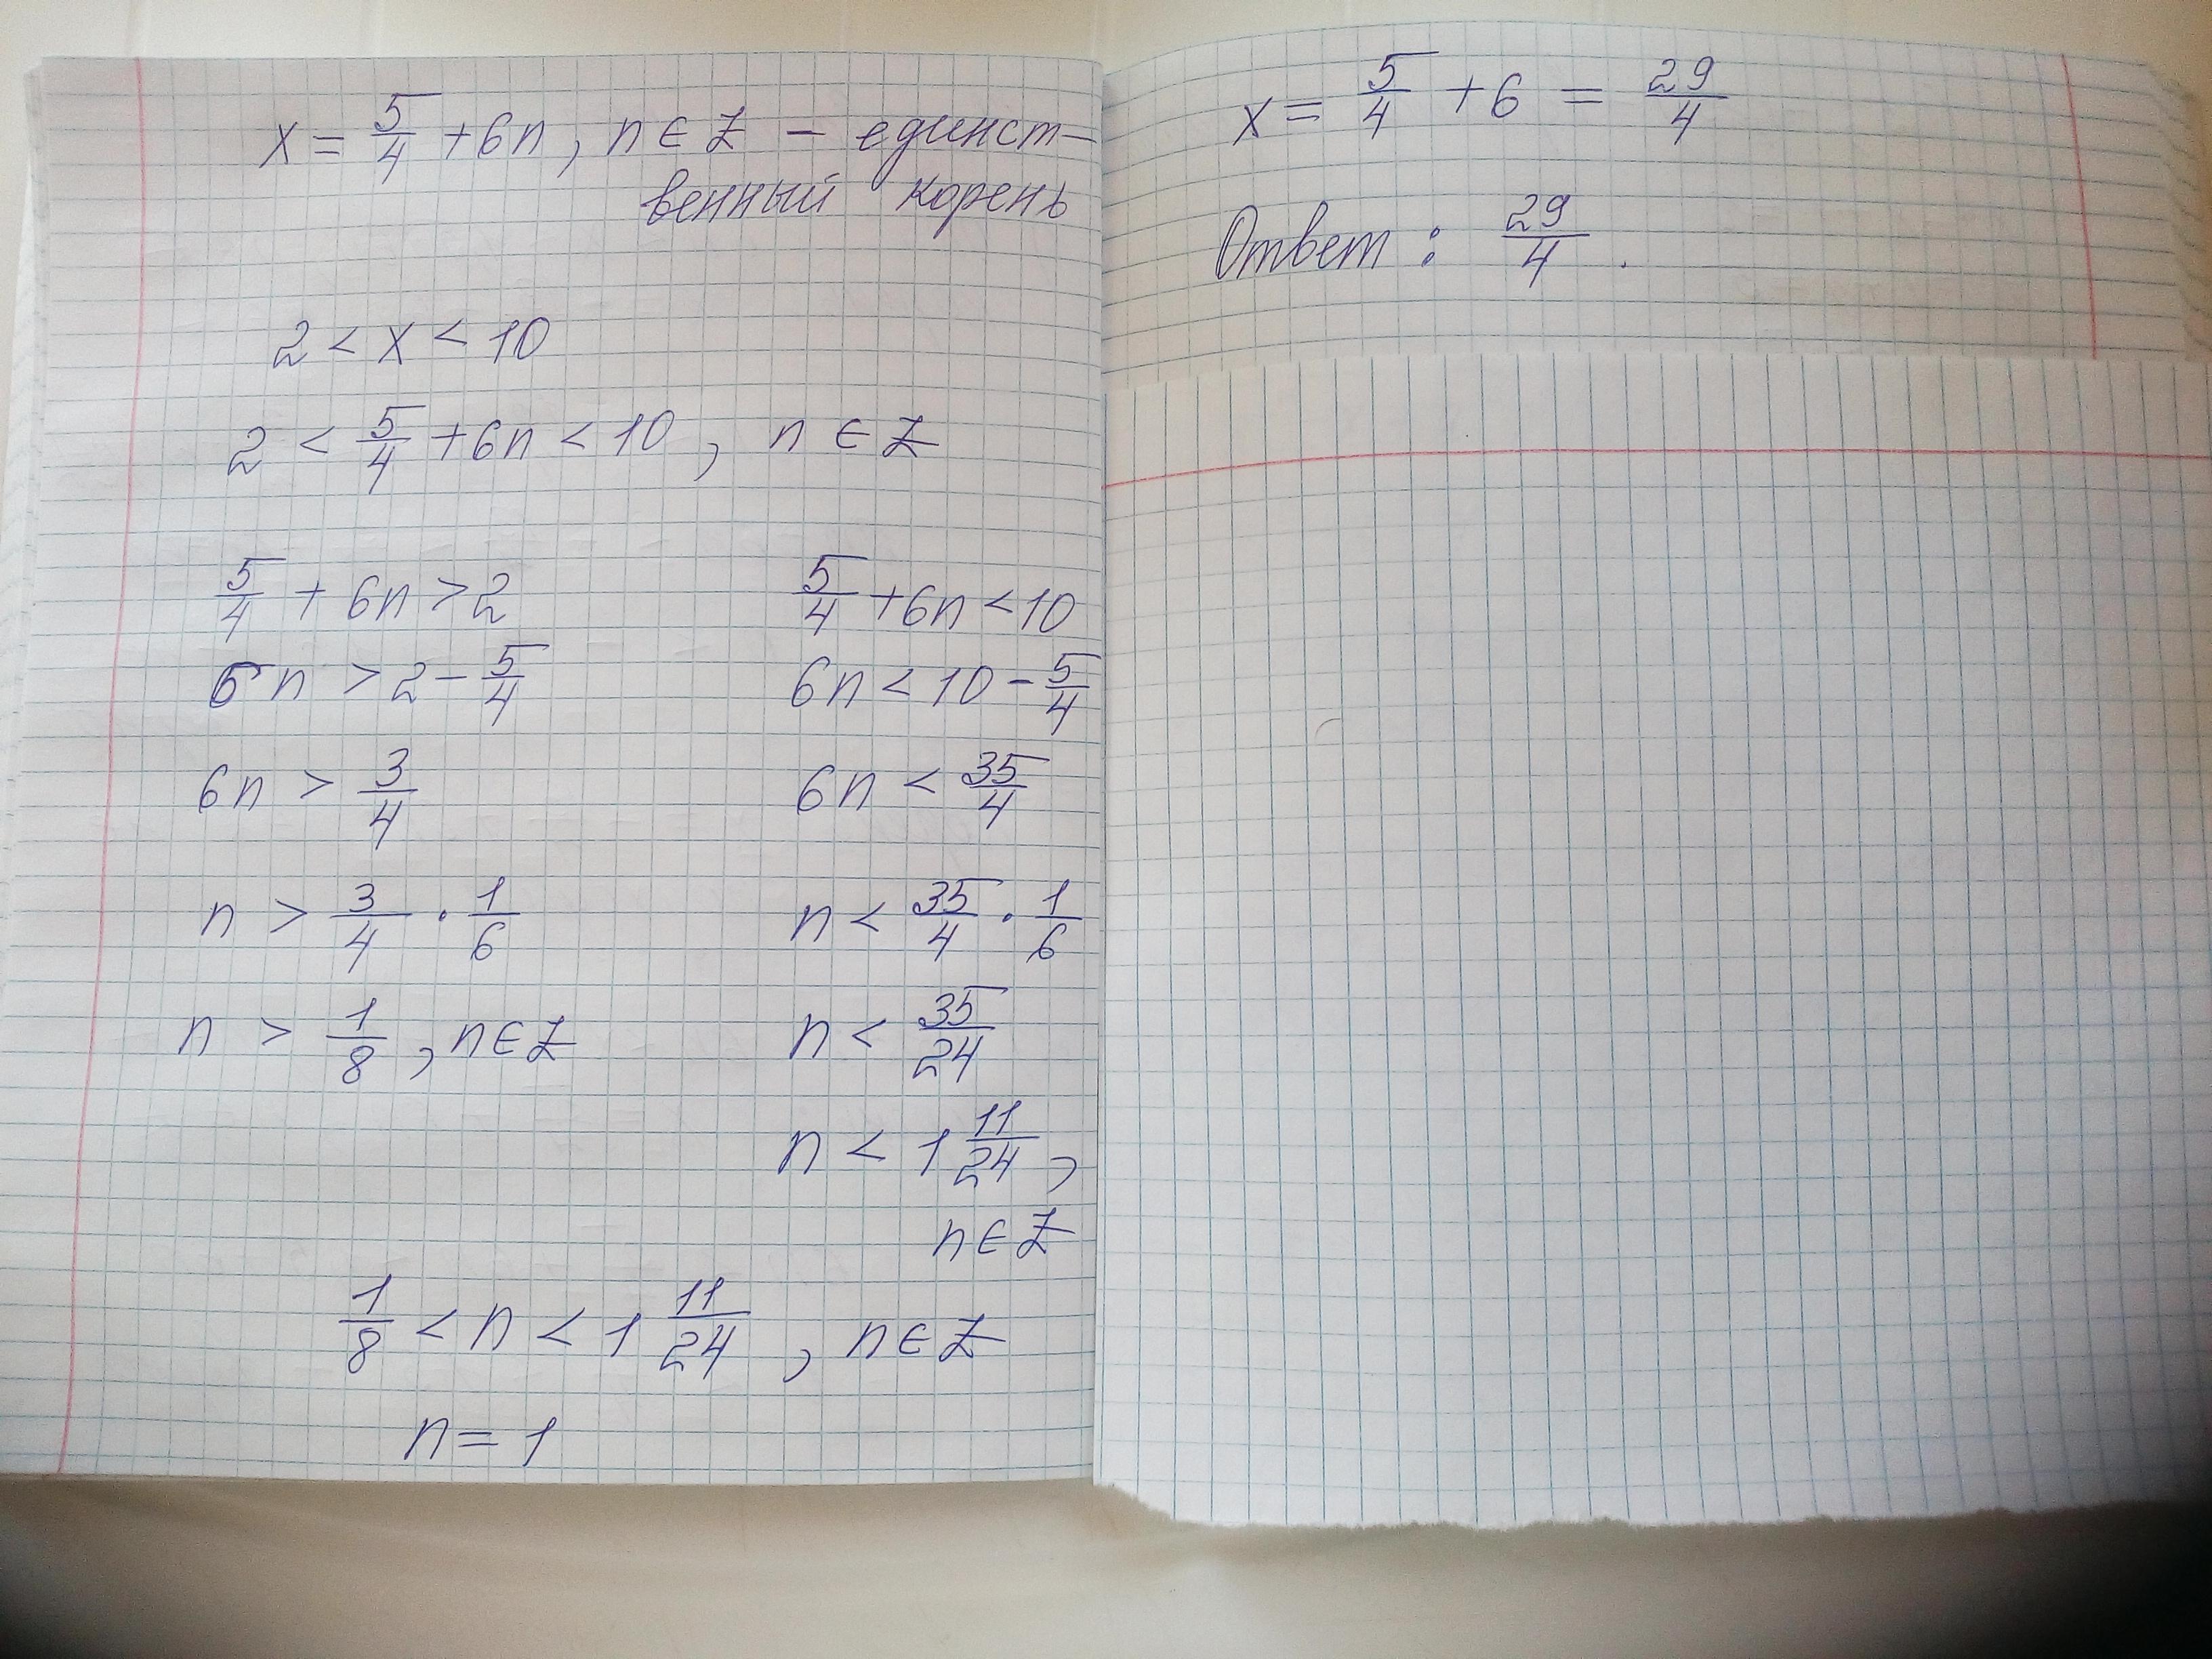 x = 5/4 + 6n, n ∈ Z – единст-
венный корень
2 < x < 10
2 < 5/4 + 6n < 10, n ∈ Z
5/4 + 6n > 2
6n > 2 – 5/4
6n > 3/4
n > 3/4 · 1/6
n > 1/8, n ∈ Z
5/4 + 6n < 10
6n < 10 – 5/4
6n < 35/4
n < 35/4 · 1/6
n < 35/24
n < 1 11/24,
n ∈ Z
1/8 < n < 1 11/24, n ∈ Z
n = 1
x = 5/4 + 6 = 29/4
Ответ: 29/4.